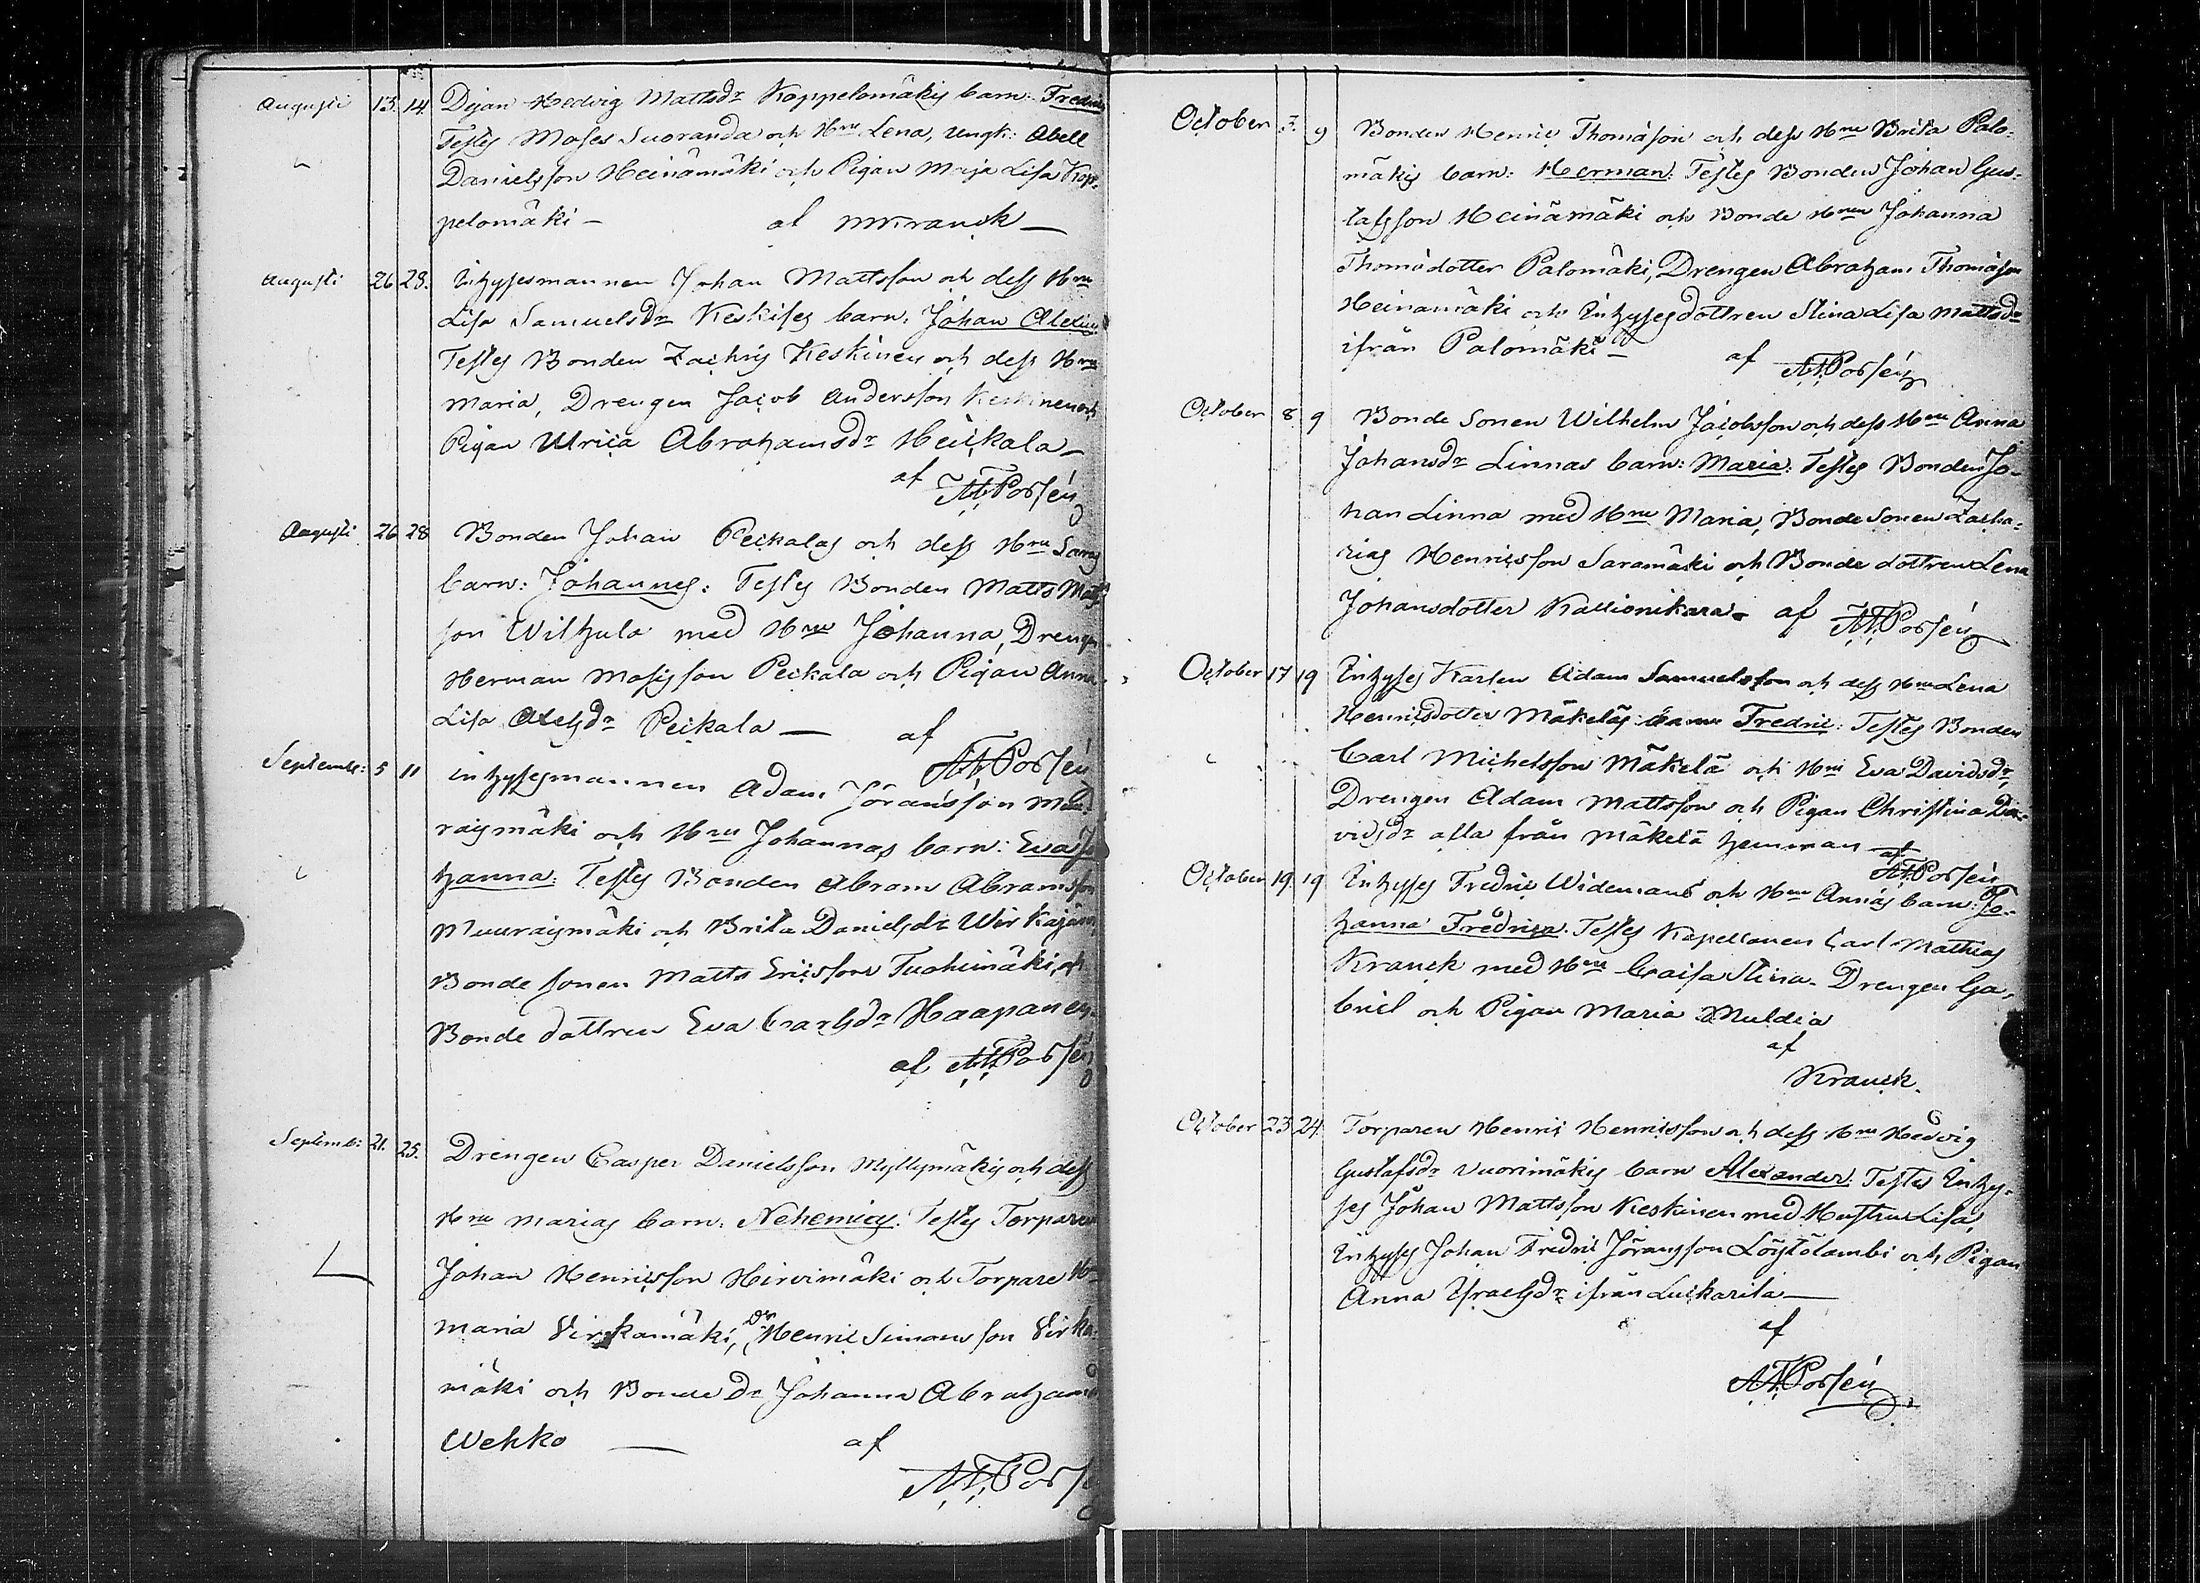 Augusti 13. 14. Pigan Hedvig Mattsdr Koppelomäkis barn: Fredric
Testes Moses Suoranda och Hru Lena, ungk: Abell
Danielsson Heinämäki och Pigan Maja Lisa Kop-
pelomäki — af Kranck —
Augusti 26 28. Inhysesmannen Johan Mattsson och dess Hru
Lisa Samuelsdr Keskises barn: Johan
Testes Bonden Zachris Keskinen och dess Hru
Maria, Drengen Jacob Andersson Keskinen och
Pigan Ulrica Abrahamsdr Heickala —
af Porsén
Augusti 26 28 Bonden Johan Peikalas och dess Hru Saras
barn: Johannes: Testes Bonden Matts Matts
son Wilhula med Hru Johanna, Drengen
Herman Mosisson Peikala och Pigan Anna
Lisa Axelsdr Peikala — af
Porsén
Septemb: 5 11 inhysesmannen Adam Göransson Muu-
raismäki och Hru Johannas barn: Eva Jo
hanna: Testes Bonden Abram Abramsson
Muuraismäki och Brita Danielsdr
Bonde sonen Matts Ericsson Tuohimäki, och
Bonde dottren Eva Carlsdr Haapanen
af Porsén
Septemb: 21. 25. Drengen Casper Danielsson Myllymäkis och dess
Hru Marias barn: Nehemias. Testes Torparen
Johan Henricsson Hirvimäki och Torpare Hru
Maria Virkamäki, Dr Henric Simonsson Virka-
mäki och Bonde Dr Johanna Abrahamsd
Wehko — af
Porsé
October 3. 9 Bonden Henric Thomasson och dess Hru Brita Palo-
mäkis barn: Herman: Testes Bonden Johan Gus-
tafsson Heinämäki och Bonde Hrun Johanna
Thomadotter Palomäki, Drengen Abraham Thomasson
Heinamäki och Inhysesdottren Stina Lisa Mattsdr
ifrån Palomäki — af Porsén
October 8 9 Bonde Sonen Wilhelm Jacobsson och dess Hru Anna
Johansdr Linnas barn: Maria: Testes Bonden Jo-
han Linna med Hru Maria, Bonde Sonen Zacha-
rias Henricsson Saramäki och Bonde dottren Lena
Johansdotter Kallionikara — af Porsén
October 17 19 Inhyses Karlen Adam Samuelsson och dess Hru Lena
Henricsdotter Mäkeläs barn Fredric: Testes Bonden
Carl Michelsson Mäkelä och Hru Eva Davidsdr,
Drengen Adam Mattsson och Pigan Christina Da-
vidsdr alla från Mäkelä hemman af
Porsén
October 19. 19 Inhyses Fredric Widemans och Hru Annas barn: Jo-
hanna Fredrica: Testes Kapellanen Carl Mathias
Kranck med Hru Caisa Stina. Drengen Ga-
briel och Pigan Maria Muldia
af
Kranck.
October 23 24 Torparen Henric Henricsson och dess Hru Hedvig
Gustafsdr Vuorimäkis barn Alexander: Testes Inhy-
ses Johan Mattsson Keskinen med Hustru Lisa,
Inhyses Johan Fredric Göransson Löytölambi och Pigan
Anna Israelsdr ifrån Luikarila —
af
Porsén